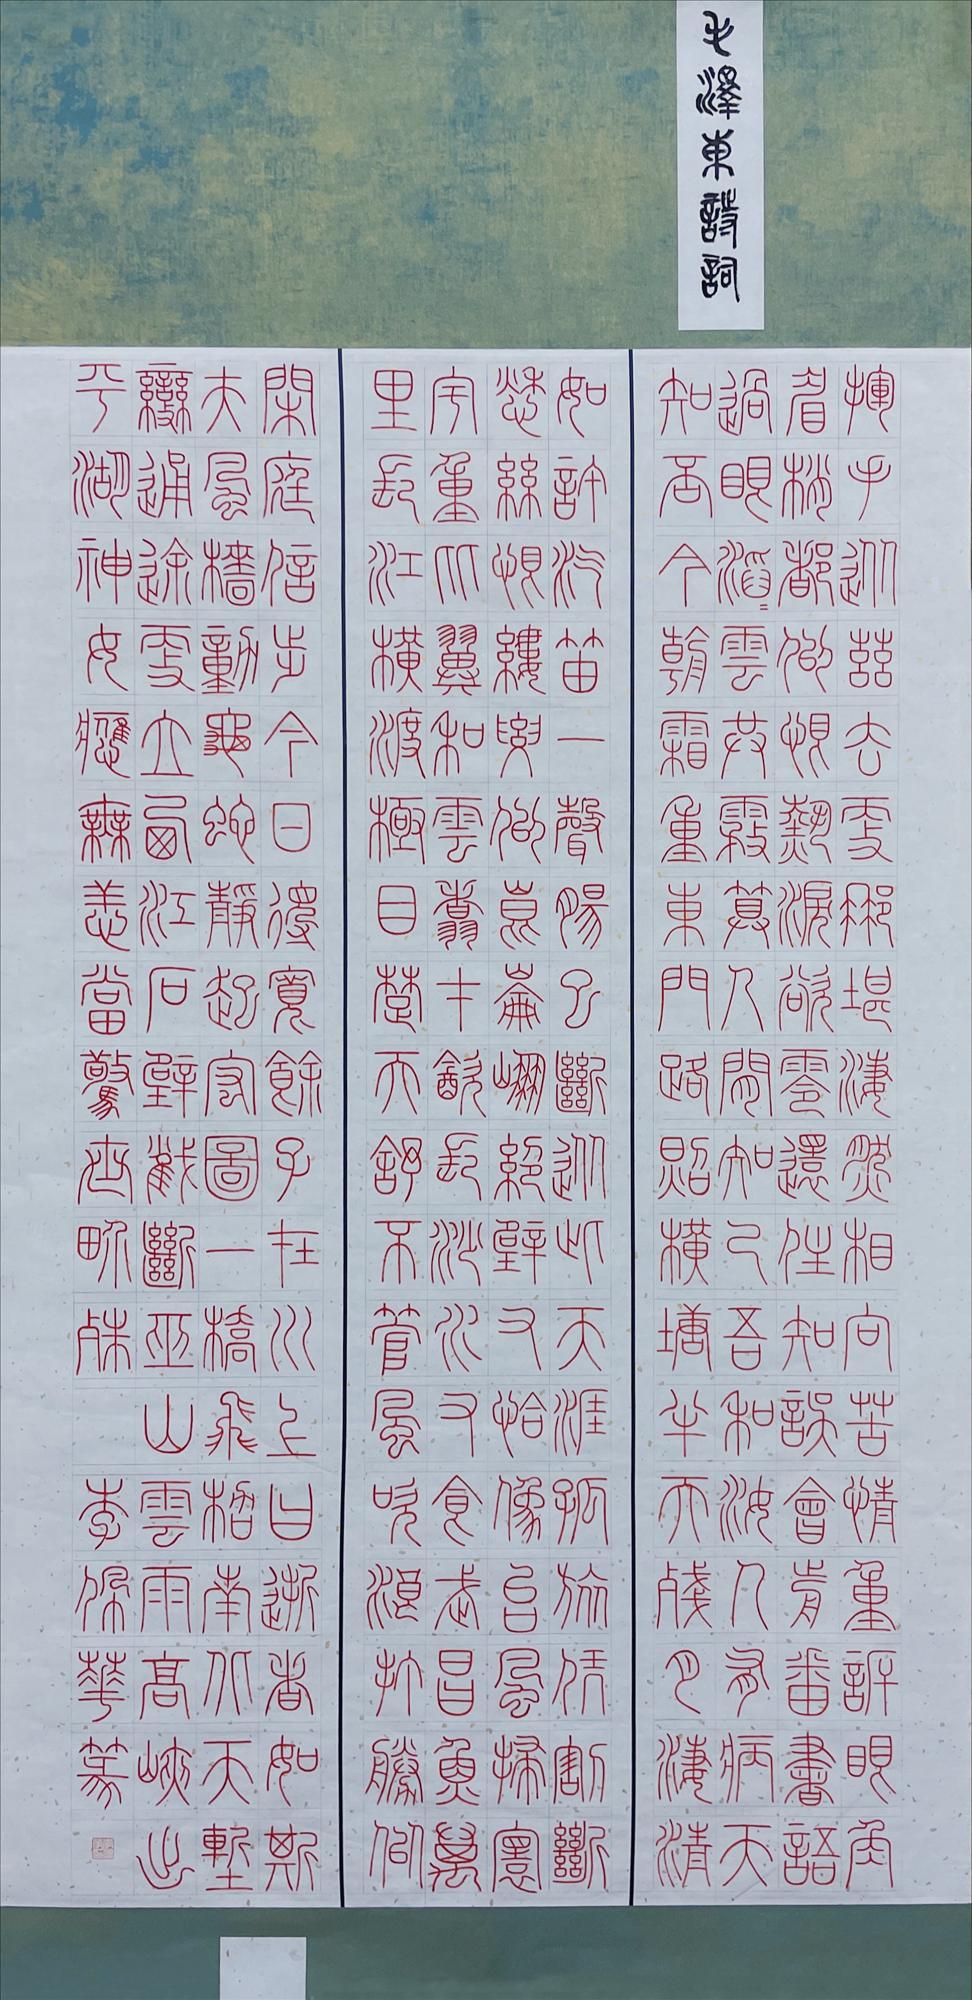 毛澤東詩詞
揮手從茲去更那堪淒然相向苦情重訴眼角
眉梢都似恨熱淚欲零還住知誤會前番書語
過眼滔〻雲共霧算人間知己吾和汝人有病天
知否今朝霜重東門路照橫塘半天殘月淒清
如許汽笛一聲腸已斷從此天涯孤旅憑割斷
愁絲恨縷要似崑崙崩絕壁又恰像台風掃寰
宇重比翼和雲翥才飲長沙水又食武昌魚萬
里長江橫渡極目楚天舒不管風吹浪打勝似
閑庭信步今日得寬餘子在川上曰逝者如斯
夫風檣動龜蛇靜起宏圖一橋飛架南北天塹
變通途更立西江石壁截斷巫山雲雨高峽出
平湖神女應無恙當驚世界殊
李保華篆